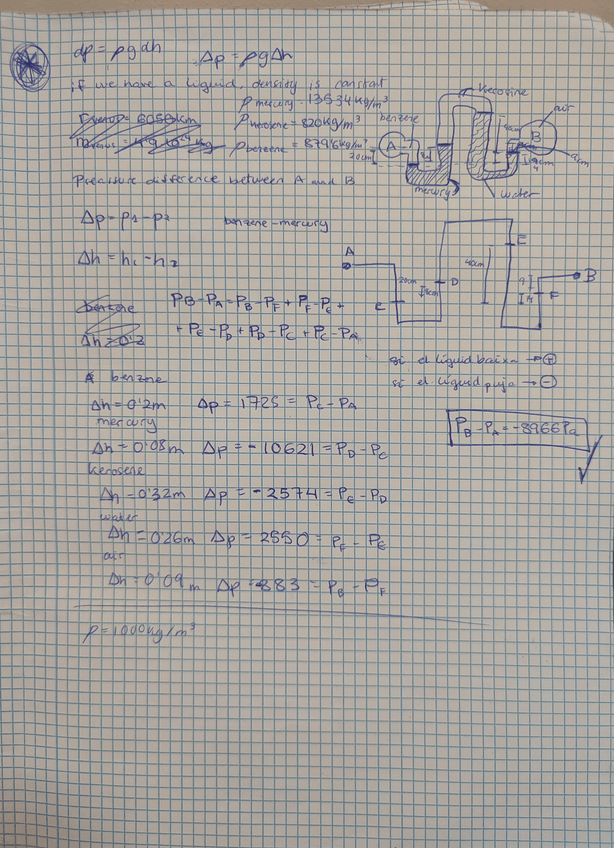 dp = ρ g dh    Δp = ρ g Δh
if we have a liquid, density is constant
ρ mercury = 13534 kg/m³
ρ kerosene = 820 kg/m³
ρ benzene = 879'6 kg/m³
Pressure difference between A and B
kerosine
air
benzene
A
B
20cm
mercury
water
Δp = p1 - p2    benzene - mercury
Δh = h1 - h2
benzene
Δh = 0'2
PB - PA = PB - PF + PF - PE +
+ PE - PD + PD - PC + PC - PA
A
20cm
C
8cm
D
40cm
E
9
14
F
B
si el líquid baixa → +
si el líquid puja → -
A benzne
Δh = 0'2m    Δp = 1725 = PC - PA
mercury
Δh = 0'08m    Δp = -10621 = PD - PC
kerosene
Δh = 0'32m    Δp = -2574 = PE - PD
water
Δh = 0'26m    Δp = 2550 = PF - PE
air
Δh = 0'09m    Δp = 883 = PB - PF
PB - PA = -8966 Pa
ρ = 1000 kg/m³